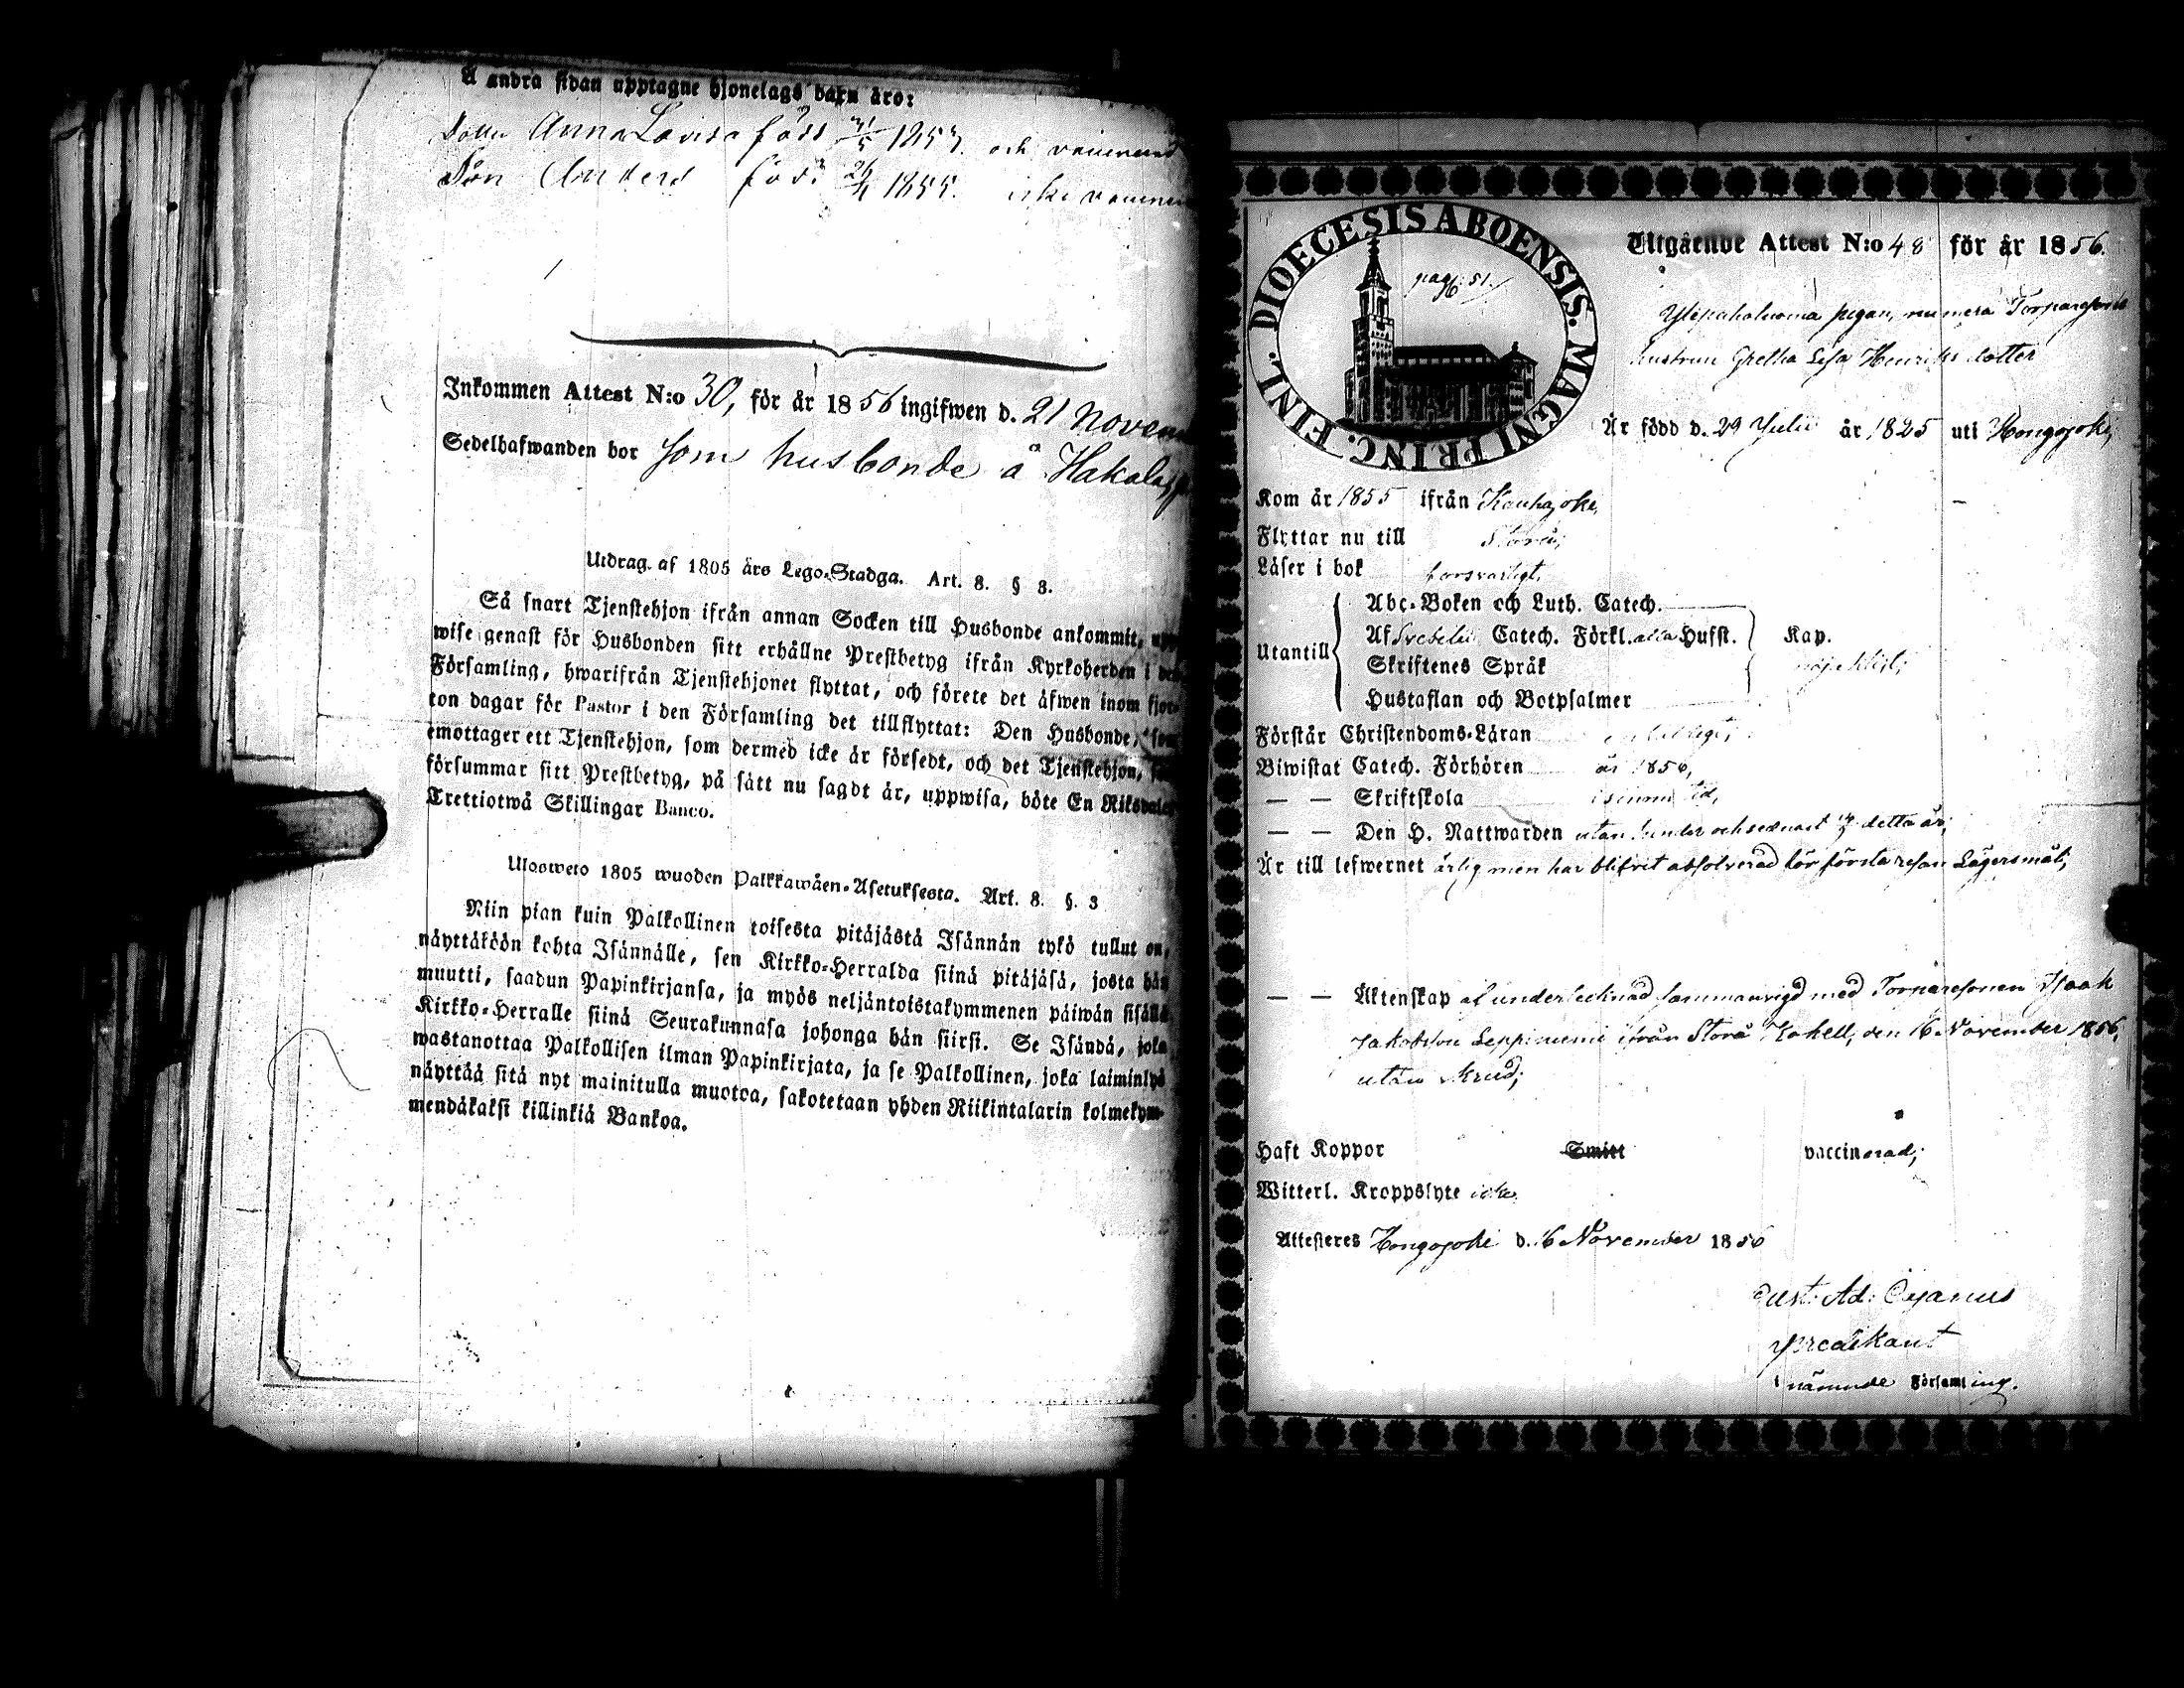 Å andra sidan upptagne hjonelags barn äro:
Anna Lovisa född 1853. och
Son Anders född 1855. icke
Inkommen Attest N:o 30, för år 1856 ingifwen d. 21 Novem
Sedelhafwanden bor som husbonde å
Utdrag af 1805 års Lego-Stadga. Art. 8. § 3.
Så snart Tjenstehjon ifrån annan Socken till Husbonde ankommit, upp-
wise genast för Husbonden sitt erhållne Prestbetyg ifrån Kyrkoherden i den
Församling, hwarifrån Tjenstehjonet flyttat, och förete det äfwen inom fjor-
ton dagar för Pastor i den Församling det tillflyttat: Den Husbonde, som
emottager ett Tjenstehjon, som dermed icke är försedt, och det Tjenstehjon,
försummar sitt Prestbetyg, på sätt nu sagdt är, uppwisa, böte En Riksdaler
Trettiotwå Skillingar Banco.
Ulosweto 1805 wuoden Palkkawäen-Asetuksesta. Art. 8. §. 3
Niin pian kuin Palkollinen toisesta pitäjästä Isännän tykö tullut on,
näyttäköön kohta Isännälle, sen Kirkko-Herralda siinä pitäjäsä, josta hän
muutti, saadun Papinkirjansa, ja myös neljäntotstakymmenen päiwän sisällä
Kirkko-Herralle siinä Seurakunnasa johonga hän siirsi. Se Isändä, joka
wastanottaa Palkollisen ilman Papinkirjata, ja se Palkollinen, joka laiminlyö
näyttää sitä nyt mainitulla muotoa, sakotetaan yhden Riikintalarin kolmekym-
mendäkaksi killinkiä Bankoa.
DIOECESIS ABOENSIS. MAGNI PRINC. FINL.
pag. 51
Utgående Attest N:o 48 för år 1856.
pigan, numera
hustrun Gretha Lisa Henriksdotter
Är född d. 29 Julii år 1825 uti Hongojoki,
Kom år 1855 ifrån Kauhajoki,
Flyttar nu till Storå;
Läser i bok försvarligt,
Utantill
Abc-Boken och Luth. Catech.
Af Svebelii Catech. Förkl. alla Hufst.
Skriftenes Språk
Hustaflan och Botpsalmer
Kap.
nöjaktigt;
Förstår Christendoms-Läran
Biwistat Catech. Förhören år 1856,
— — Skriftskola i sinom tid,
— — Den H. Nattwarden utan hinder och senast detta år;
Är till lefwernet ärlig men har blifvit absolverad för första resan Lägersmål;
— — Äktenskap af undertecknad sammanvigd med Torparesonen Isaak
Jakobsson Leppiniemi ifrån Storå Kapell, den 16 November 1856,
utan skrud;
Haft Koppor Smitt vaccinerad;
Witterl. Kroppslyte icke.
Attesteres Hongojoki d. 16 November 1856
Gust. Ad.
Predikant
i nämnde Församling.